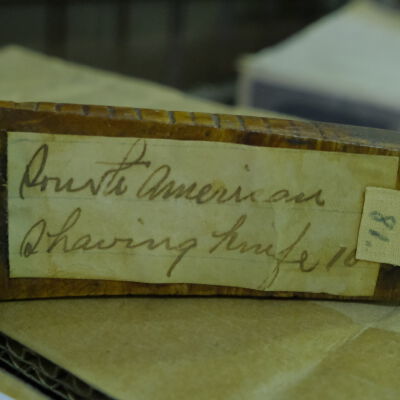 South American
Shaving knife 10
"18